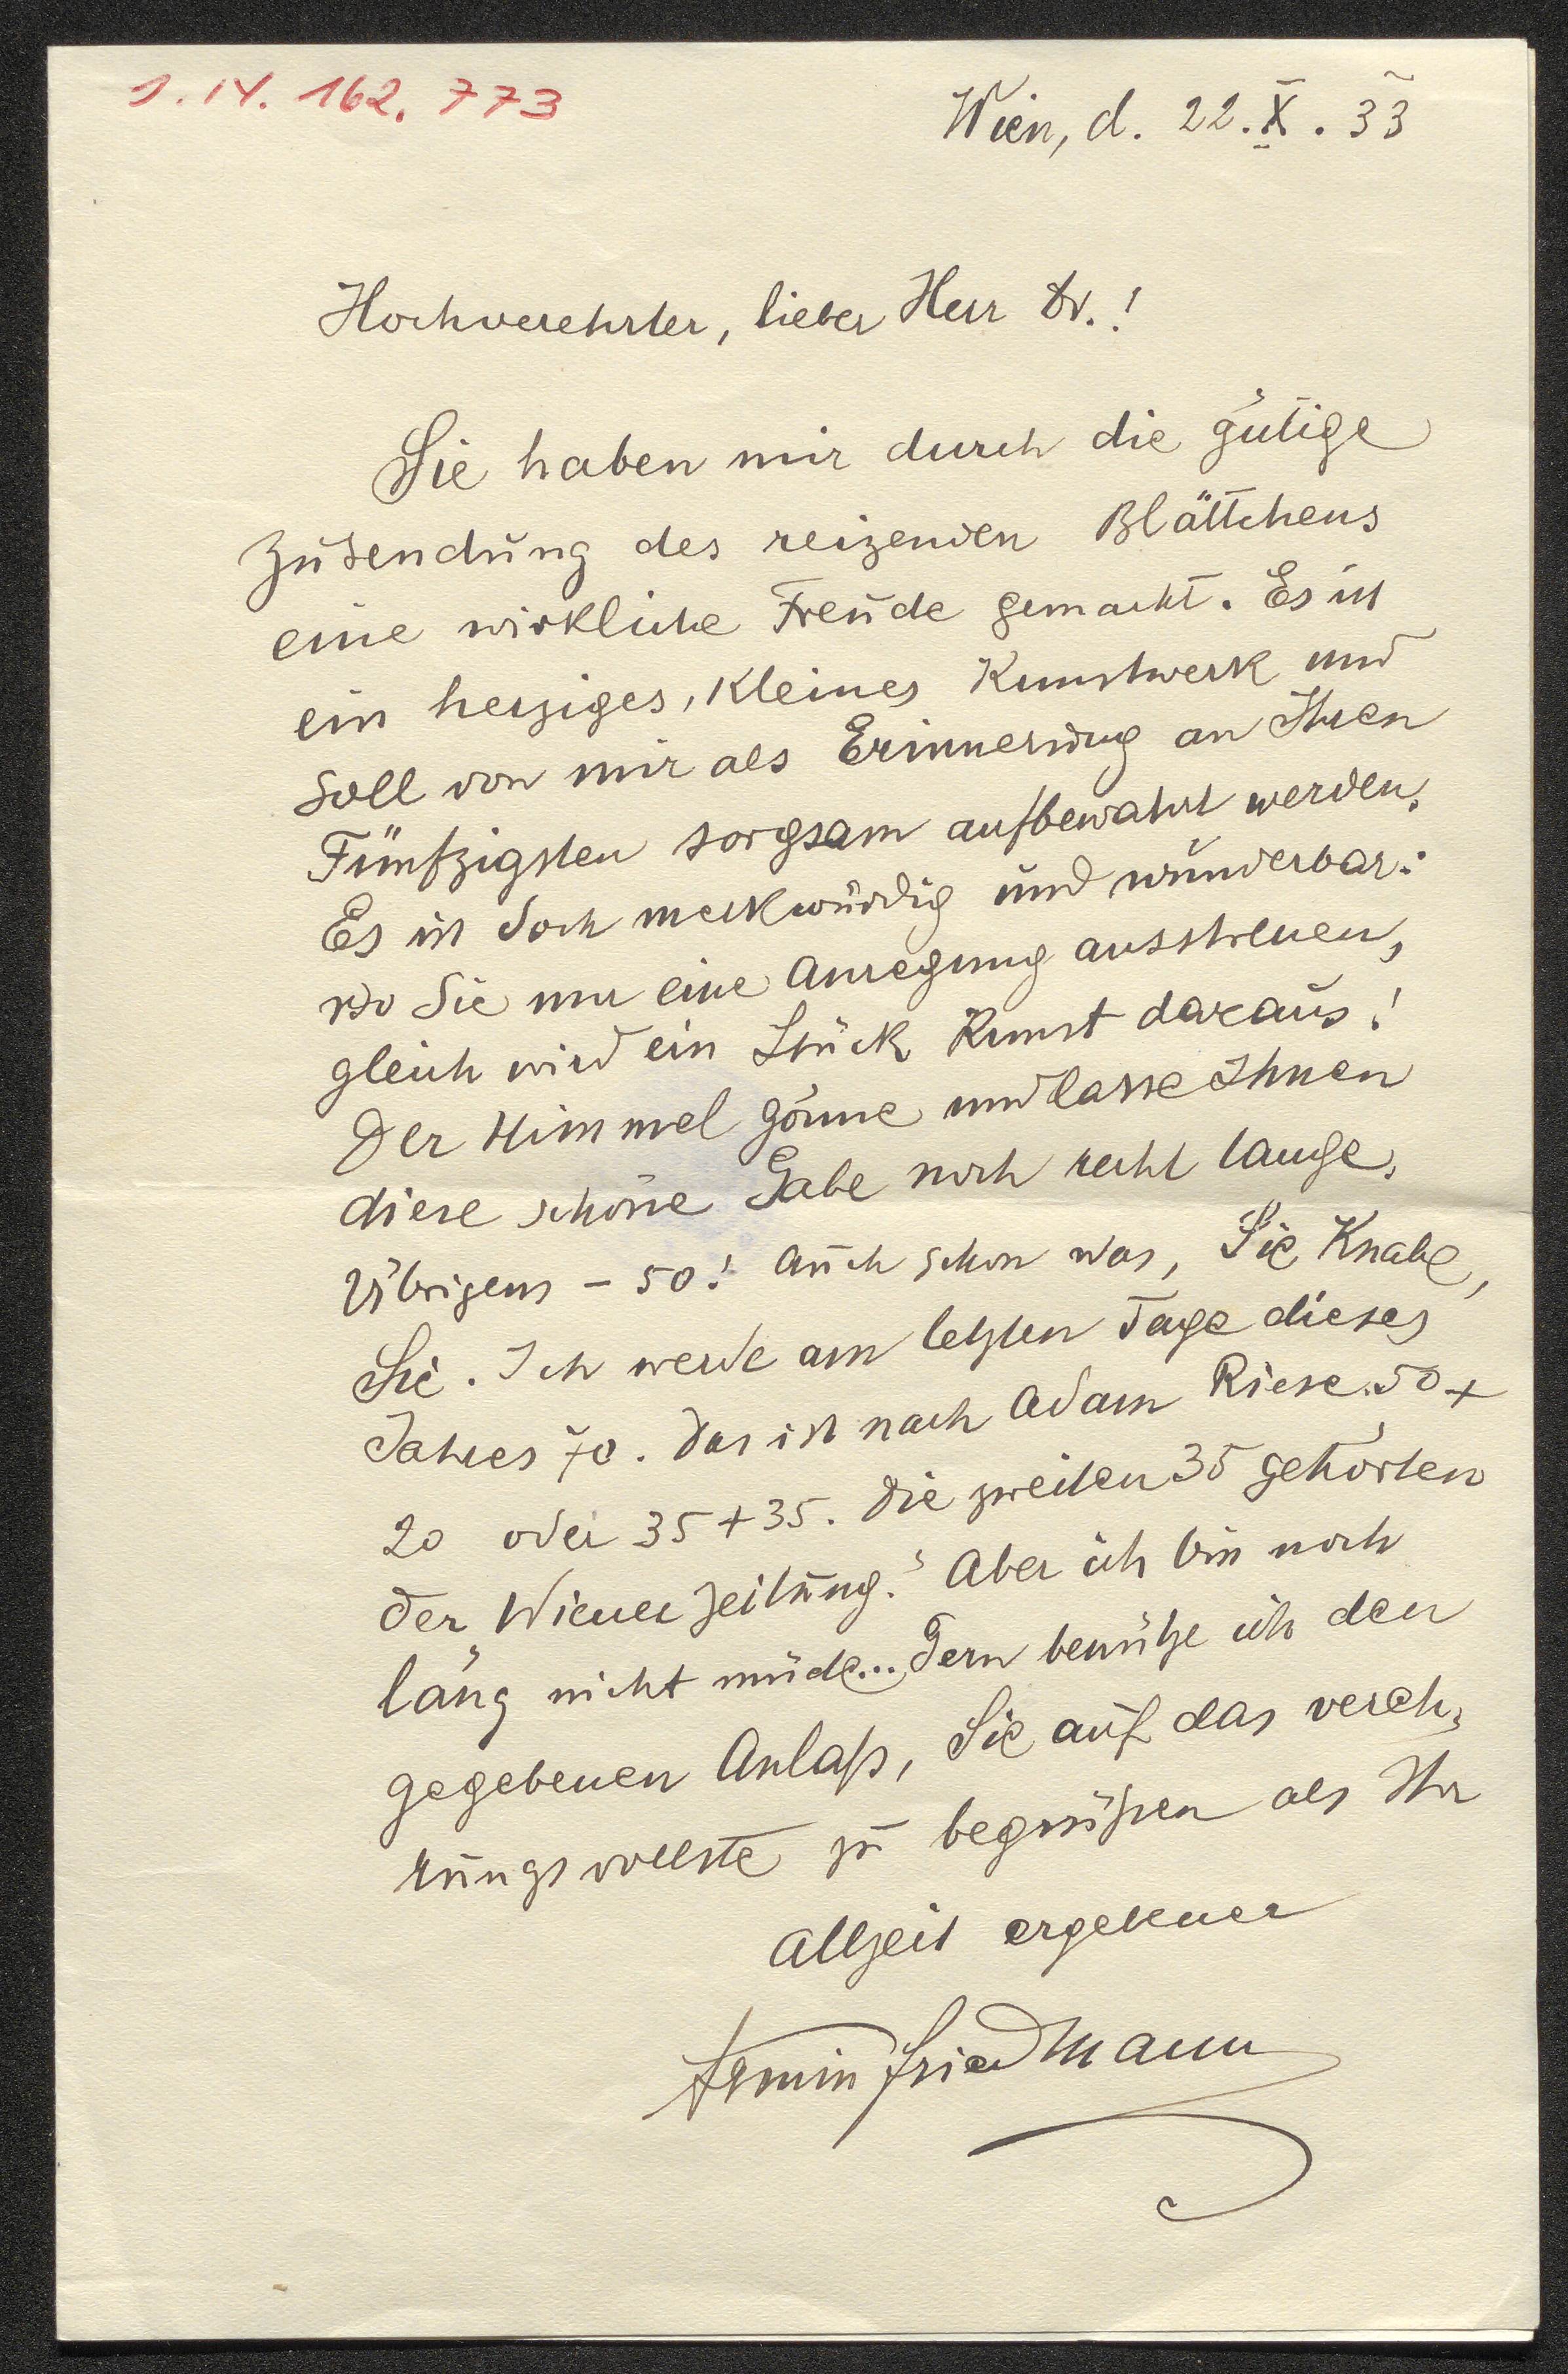 J. N. 162.773
Wien, d. 22. X. 33
Hochverehrter, lieber Herr Dr.!
Sie haben mir durch die gütige
Zusendung des reizenden Blättchens
eine wirkliche Freude gemacht. Es ist
ein herziges, kleines Kunstwerk und
soll von mir als Erinnerung an Ihren
Fünfzigsten sorgsam aufbewahrt werden.
Es ist doch merkwürdig und wunderbar:
wo Sie nur eine Anregung ausstreuen,
gleich wird ein Stück Kunst daraus!
Der Himmel gönne und lasse Ihnen
diese schöne Gabe noch recht lange.
Übrigens – 50! Auch schon was, Sie Knabe,
Sie. Ich werde am letzten Tage dieses
Jahres 70. Das ist nach Adam Riese 50 +
20 oder 35 + 35. Die zweiten 35 gehörten
der Wiener Zeitung. Aber ich bin noch
lang nicht müde... Gern benütze ich den
gegebenen Anlaß, Sie auf das vereh-
rungsvollste zu begrüßen als Ihr
allzeit ergebener
Armin Friedmann